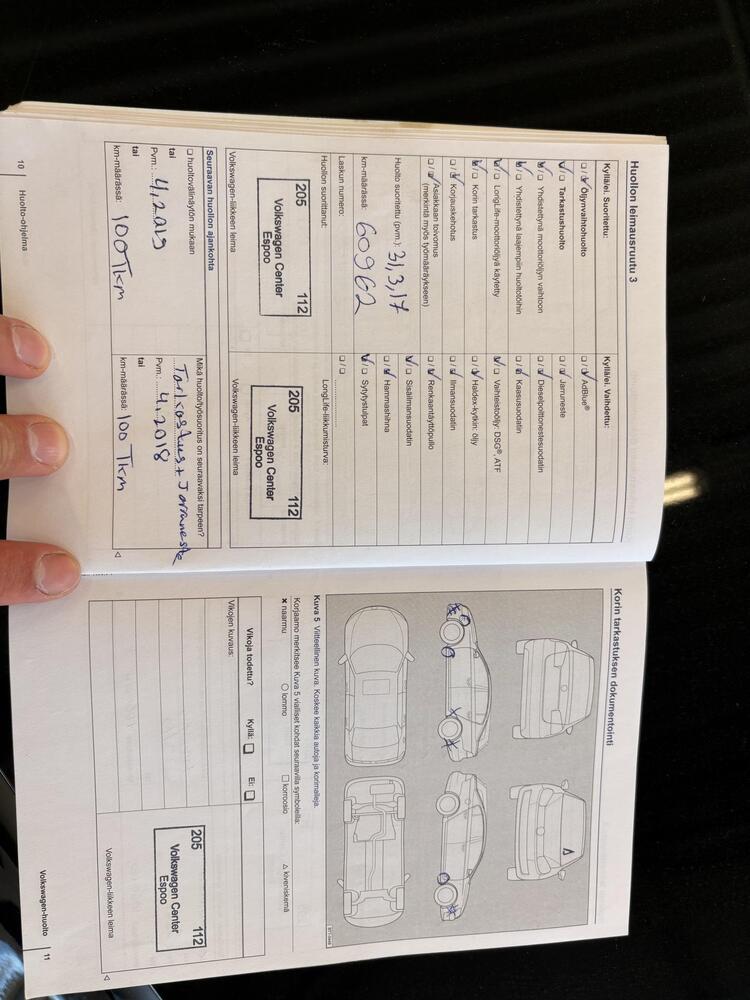 Huollon leimausruutu 3
Kyllä/ei. Suoritettu:
☐ / ☑ Öljynvaihtohuolto
☑ / ☐ Tarkastushuolto
☑ / ☐ Yhdistettynä moottoriöljyn vaihtoon
☑ / ☐ Yhdistettynä laajempiin huoltotöihin
☑ / ☐ LongLife-moottoriöljyä käytetty
☑ / ☐ Korin tarkastus
☐ / ☑ Korjauskehotus
☐ / ☑ Asiakkaan toivomus
(merkintä myös työmääräykseen)
Huolto suoritettu (pvm.): 31,3,17
km-määrässä: 60962
Laskun numero:
Huollon suorittanut:
205
112
Volkswagen Center
Espoo
Volkswagen-liikkeen leima
Kyllä/ei. Vaihdettu:
☐ / ☑ AdBlue®
☐ / ☑ Jarruneste
☐ / ☑ Dieselpolttonestesuodatin
☐ / ☑ Kaasusuodatin
☑ / ☐ Vaihteistoöljy: DSG®, ATF
☐ / ☑ Haldex-kytkin: öljy
☐ / ☑ Ilmansuodatin
☐ / ☑ Renkaantäyttöpullo
☑ / ☐ Sisäilmansuodatin
☐ / ☑ Hammashihna
☑ / ☐ Sytytystulpat
☐ / ☐
LongLife-liikkumisturva:
205
112
Volkswagen Center
Espoo
Volkswagen-liikkeen leima
Seuraavan huollon ajankohta
☐ huoltovälinäytön mukaan
tai
Pvm.: 4,2019
tai
km-määrässä: 100 Tkm
Mikä huoltotyösuoritus on seuraavaksi tarpeen?
Tarkastus + Jarruneste
Pvm.: 4,2018
tai
km-määrässä: 100 Tkm
10
Huolto-ohjelma
Korin tarkastuksen dokumentointi
Kuva 5 Viitteellinen kuva. Koskee kaikkia autoja ja korimalleja.
Korjaamo merkitsee Kuva 5 vialliset kohdat seuraavilla symboleilla:
× naarmu
○ lommo
☐ korroosio
△ kiveniskemä
Vikoja todettu?
Kyllä: ☐
Ei: ☐
Vikojen kuvaus:
205
112
Volkswagen Center
Espoo
Volkswagen-liikkeen leima
Volkswagen-huolto
11